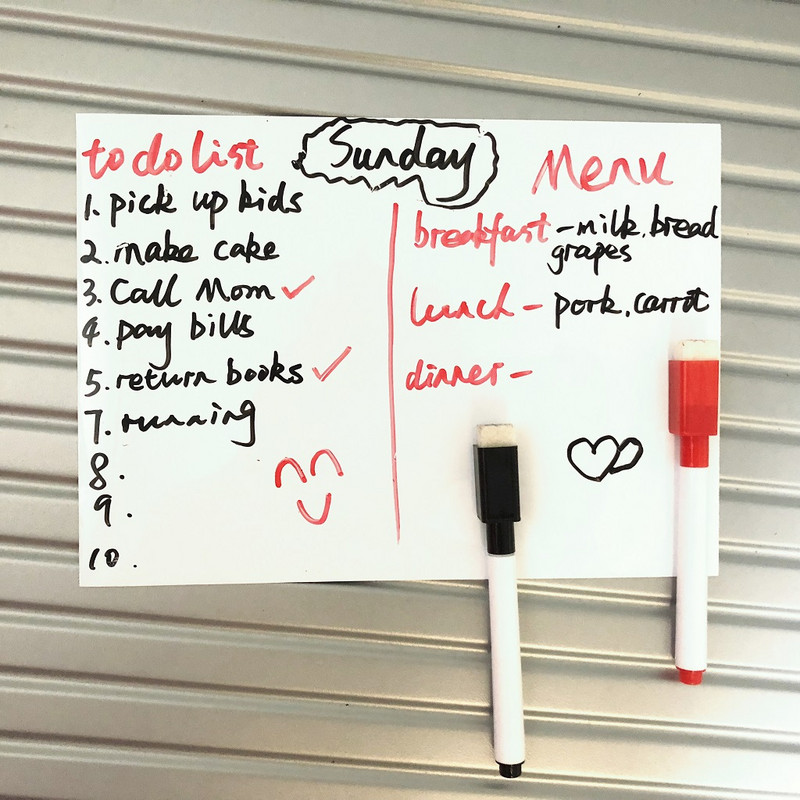 Sunday
to do list
1. pick up kids
2. make cake
3. Call Mom ✓
4. pay bills
5. return books ✓
7. running
8.
9.
10.
Menu
breakfast - milk, bread
grapes
lunch - pork, carrot
dinner -